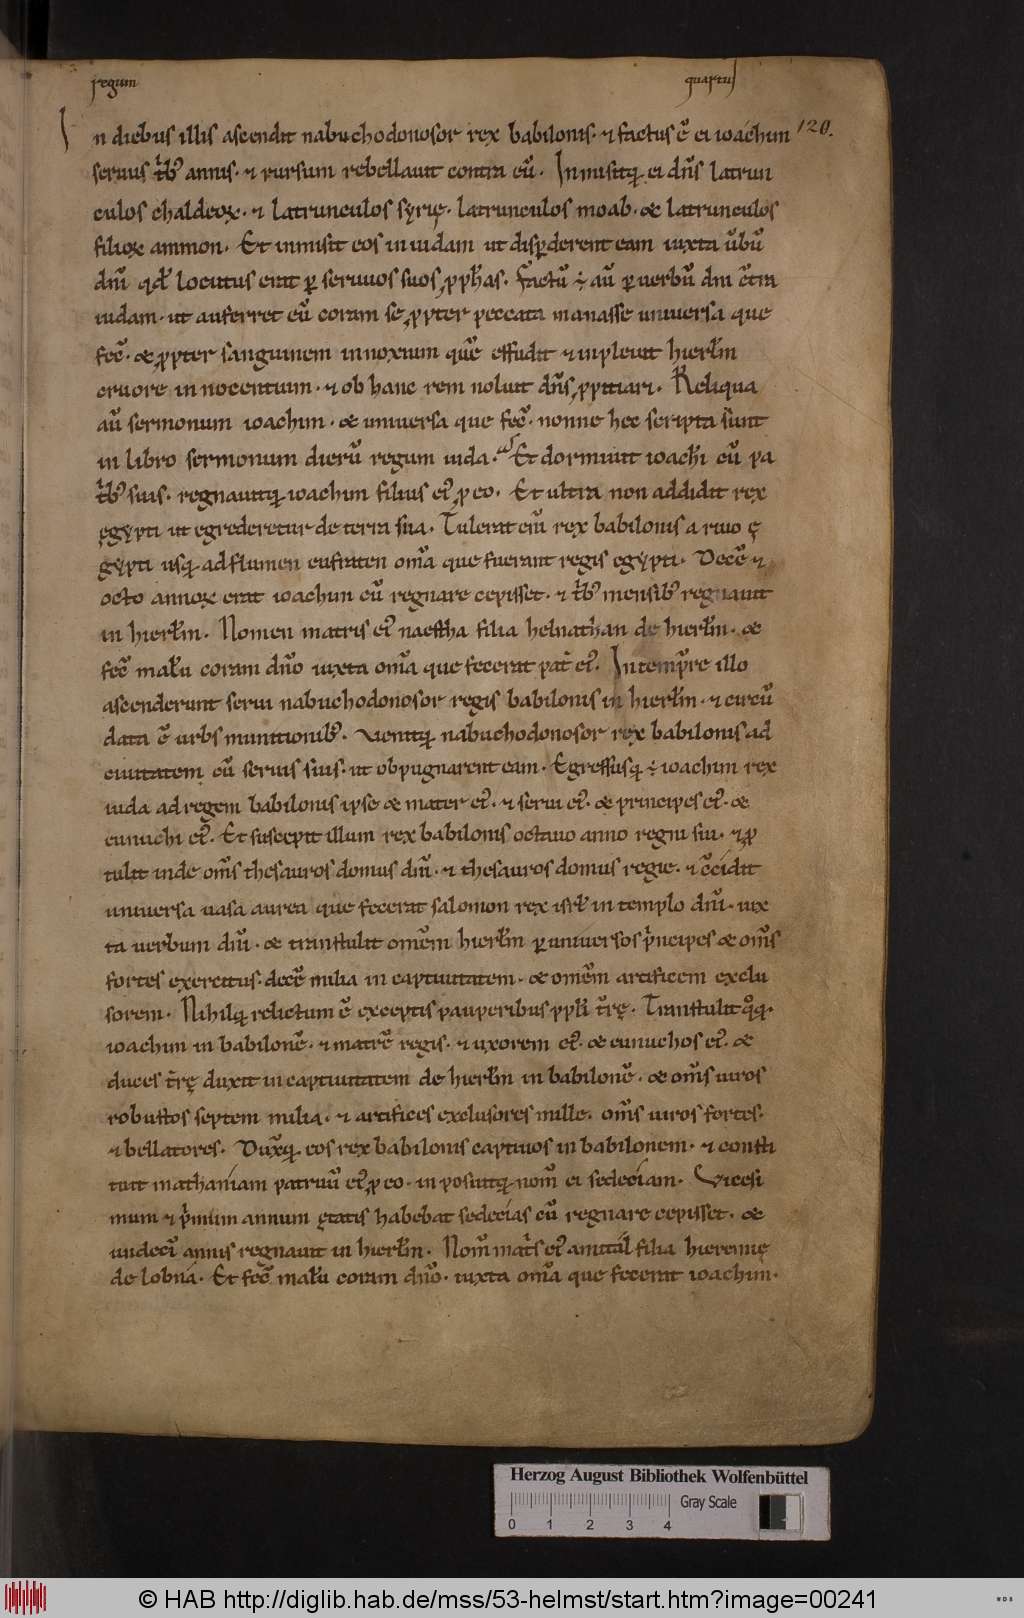 regum quartus
120.
In diebus illis ascendit nabuchodonosor rex babilonis· ⁊ factus ē ei ioachim
seruus t̄b; annis· ⁊ rursum rebellauit contra eū· Inmisitq; ei dn̄s latrun
culos chaldeoꝝ· ⁊ latrunculos syrię· latrunculos moab· & latrunculos
filioꝝ ammon· Et inmisit eos in iudam ut disꝑderent eam iuxta ūbū
dn̄i qd̄ locutus erat ꝑ seruos suos ꝓph̄as· Factū ÷ aū ꝑ uerbū dn̄i c̄tra
iudam· ut auferret eū coram se ꝓpter peccata manasse uniuersa que
fec̄· & ꝓpter sanguinem innoxium quē effudit ⁊ inpleuit hierl̄m
cruore innocentium· ⁊ ob hanc rem noluit dn̄s ꝓpitiari· Reliqua
aū sermonum ioachim· & uniuersa que fec̄· nonne hec scripta sunt
in libro sermonum dierū regum iuda· Et dormiuit ioachī cū pa
t̄b; suis· regnauitq; ioachim filius ei; ꝓ eo· Et ultra non addidit rex
ęgypti ut egrederetur de terra sua· Tulerat eni̅ rex babilonis a riuo ę
gypti usq; ad flumen eufraten om̄a que fuerant regis egypti· Decē ⁊
octo annoꝝ erat ioachim cū regnare cepisset· ⁊ t̄b; mensib; regnauit
in hierl̄m· Nomen matris ei; naestha filia helnathan de hierl̄m· &
fec̄ malū coram dn̄o iuxta om̄a que fecerat pat̄ ei;· In temp̄re illo
ascenderunt serui nabuchodonosor regis babilonis in hierl̄m· ⁊ circū
data ē urbs munitionib;· Venitq; nabuchodonosor rex babilonis ad
ciuitatem cū seruis suis· ut obpugnarent eam· Egressusq; ÷ ioachim rex
iuda ad regem babilonis ipse & mater ei;· ⁊ serui ei;· & principes ei;· &
eunuchi ei;· Et suscepit illum rex babilonis octauo anno regni sui· ⁊ ꝓ
tulit inde om̄s thesauros domus dn̄i· ⁊ thesauros domus regie· ⁊ c̄cidit
uniuersa uasa aurea que fecerat salomon rex isrl̄ in templo dn̄i· iux
ta uerbum dn̄i· & transtulit omēm hierl̄m ꝑ uniuersos p̄ncipes & om̄s
fortes exercitus· decē milia in captiuitatem· & omēm artificem exclu
sorem· Nihilq; relictum ē exceptis pauperibus ppl̄i t̄rę· Transtulit q̄q;
ioachim in babilonē· ⁊ matrē regis· ⁊ uxorem ei;· & eunuchos ei;· &
duces t̄rę duxit in captiuitatem de hierl̄m in babilonē· & om̄s uiros
robustos septem milia· ⁊ artifices exclusores mille· om̄s uiros fortes·
⁊ bellatores· Duxq; eos rex babilonis captiuos in babilonem· ⁊ consti
tuit mathaniam patruū ei; ꝓ eo· inposuitq; nom̄ ei sedeciam· Vicesi
mum ⁊ p̄mum annum ętatis habebat sedecias cū regnare cepisset· &
undecī annis regnauit in hierl̄m· Nom̄ mat̄s ei; amital filia hieremię
de lobna· Et fec̄ malū coram dn̄o· iuxta om̄a que fecerat ioachim·
Herzog August Bibliothek Wolfenbüttel
Gray Scale
0 1 2 3 4
© HAB http://diglib.hab.de/mss/53-helmst/start.htm?image=00241